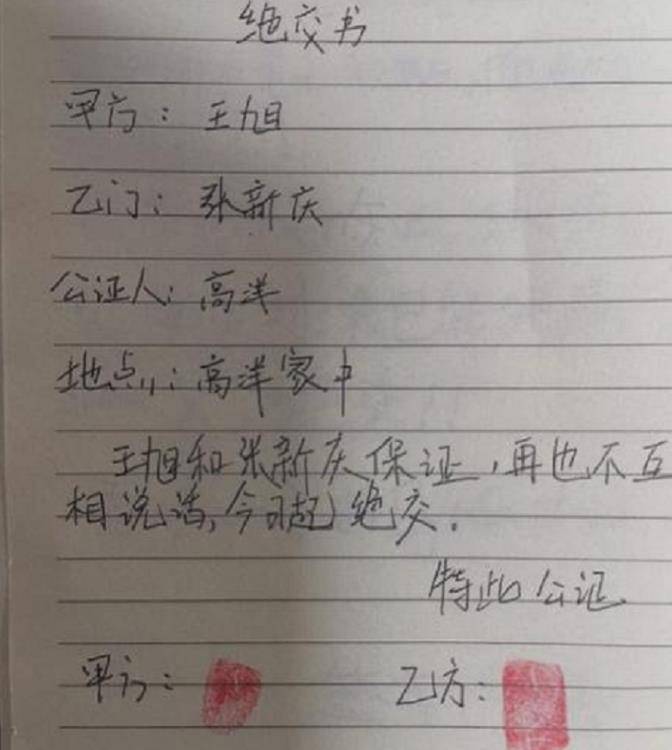 绝交书
甲方：王旭
乙门：张新庆
公证人：高洋
地点：高洋家中
王旭和张新庆保证，再也不互
相说话，今日起绝交.
特此公证
甲方：
乙方：